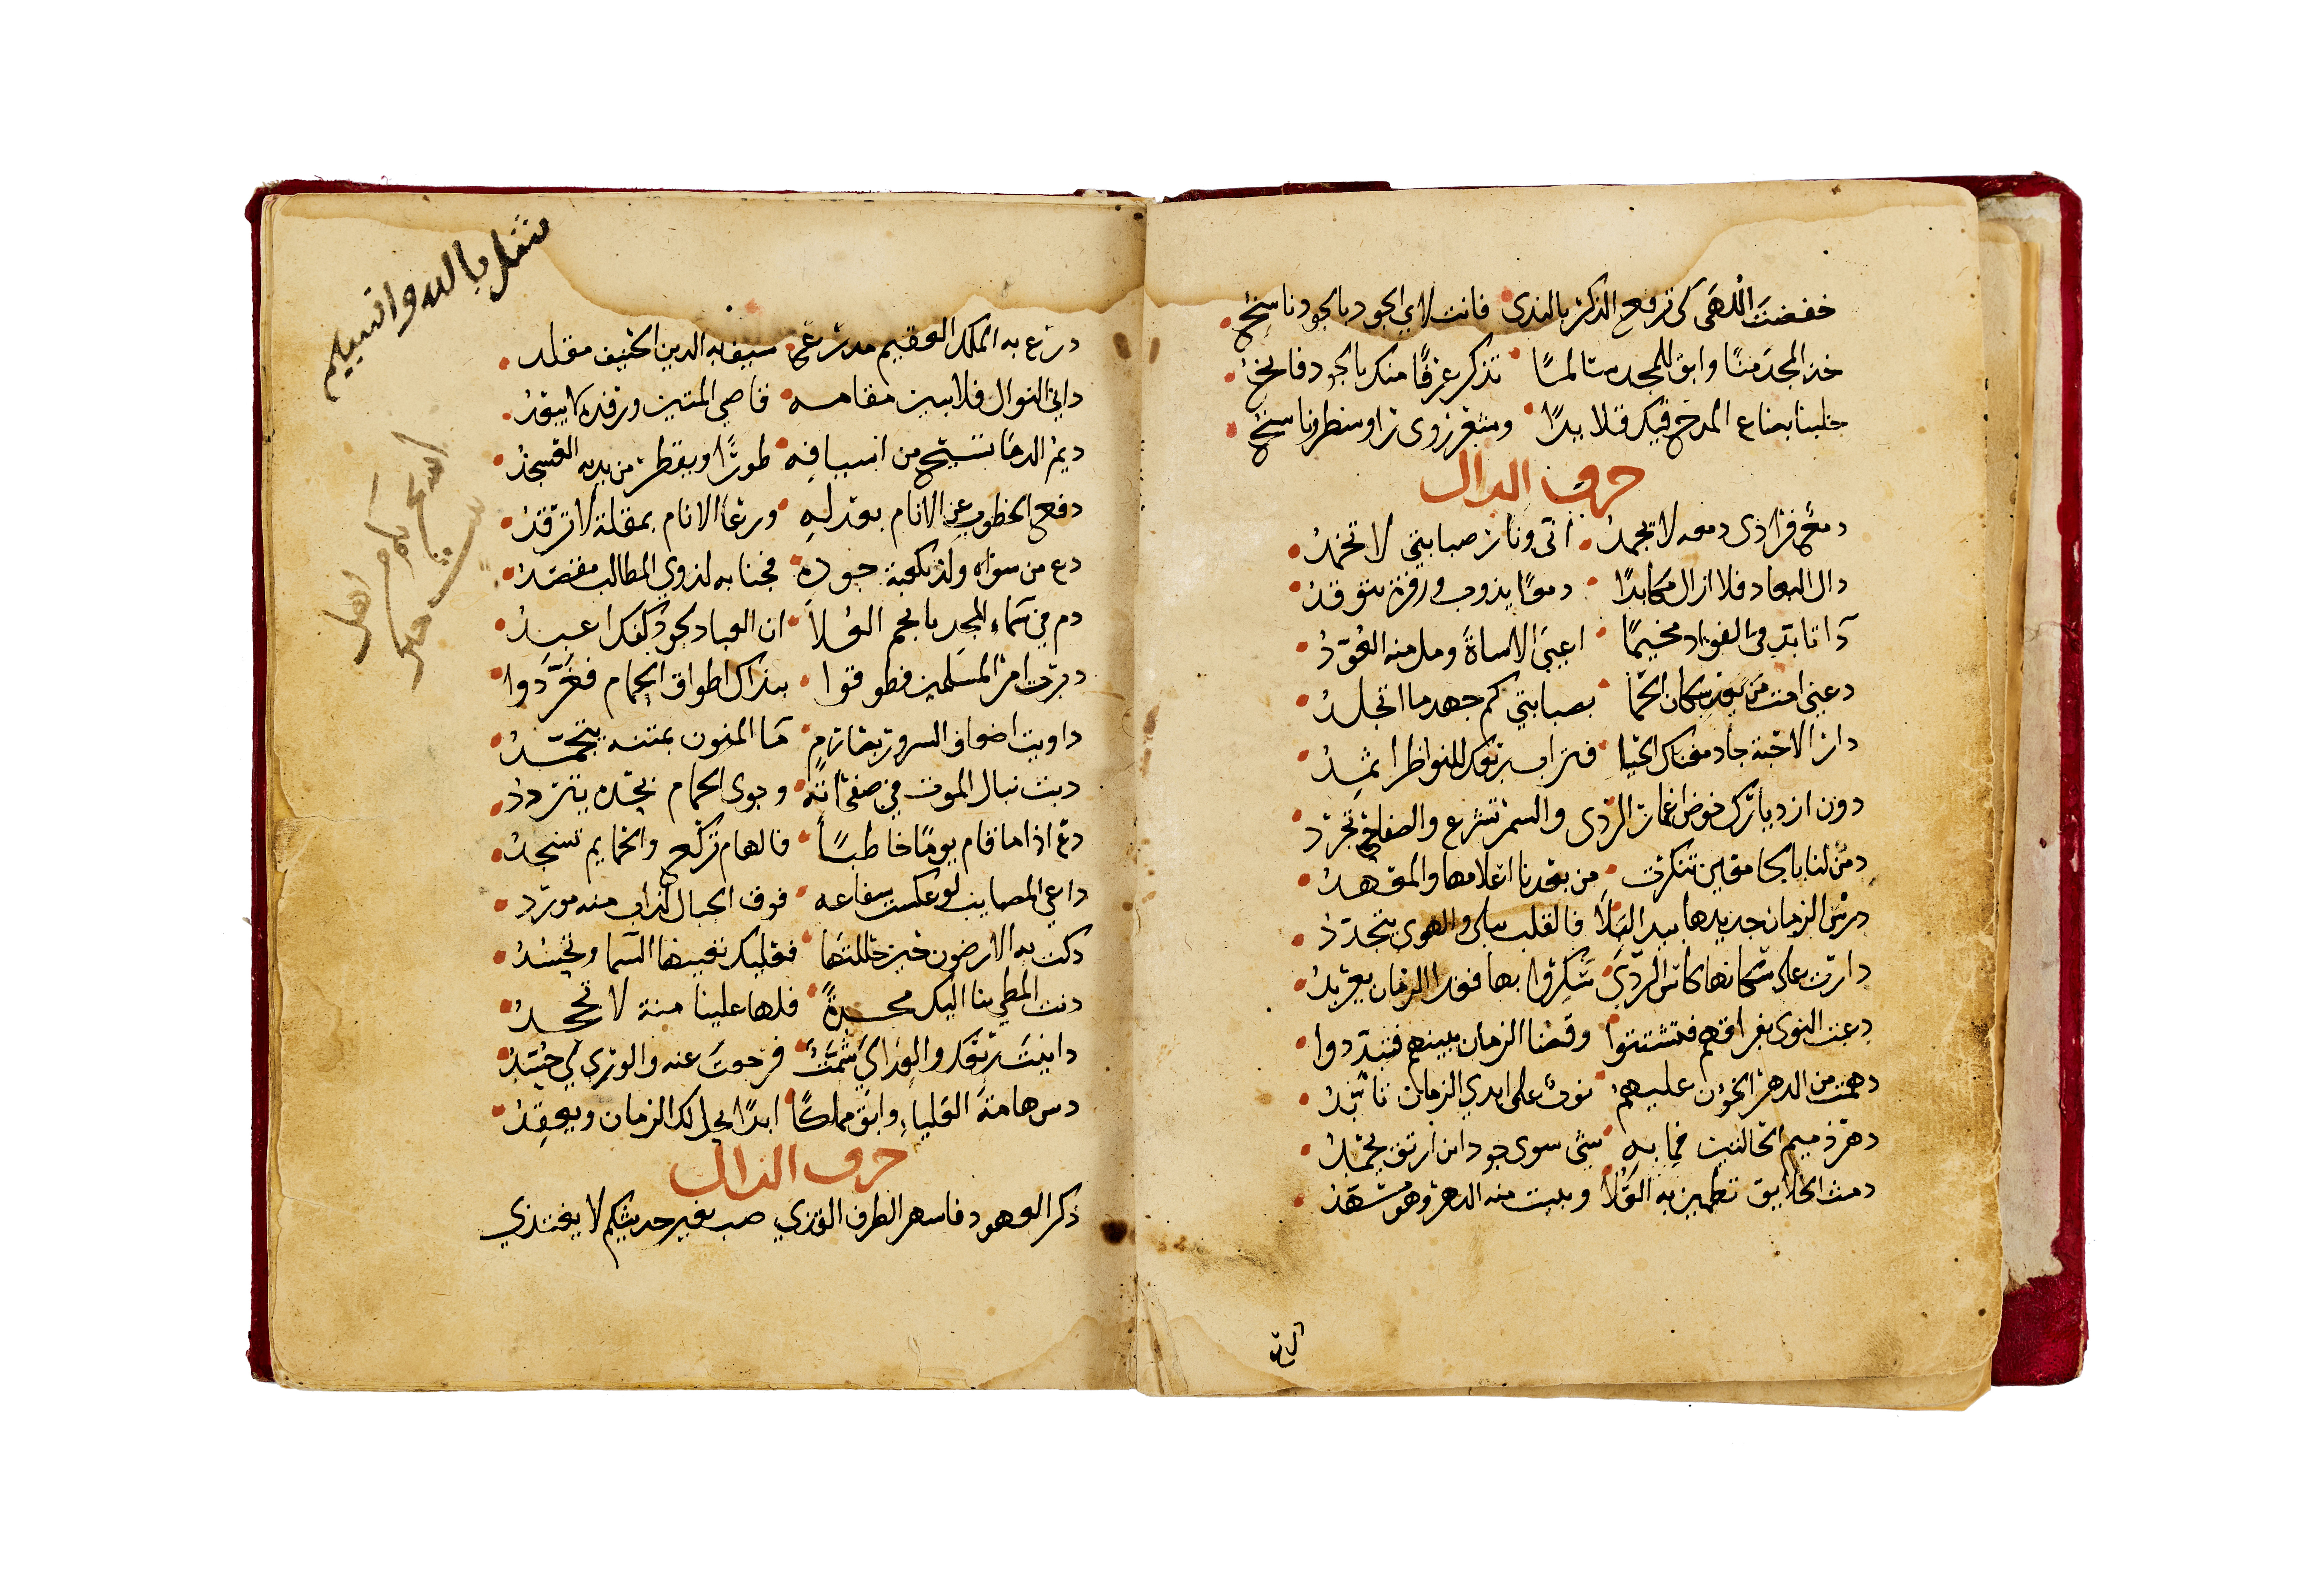 خفضت اللهى كي ترفع الذكر بالندى فانت لاي الجود بالجود ناسخ
خذ المجد منا وابق للمجد سالما تذكر عرفا منك بالجود فايخ
جلبنا بضايع المدح فيك قلايدا وشعر زوى ناسخ
حرف الدال
دمع قرا ذى دمعه لا يجمد انى ونار صبابتي لا تخمد
دال البعاد فلا ازال مكابدا دمعا يذوب وزفرة تتوقد
دآ تابد فى الفواد مخيما اعيى الاساة ومل منه العود
دعني امت من بعد سكان الحما بصبابتي كم جهد ما اتجلد
دار الاحبة جاد مغناك الحيا فتراب تربك للنواظر اثمد
دون ازديارك خوض اغمار الردى والسمر تشرع والصفاح تجرد
دمن لنا بالجامعين تنكرت من بعدنا اعلامها والمعهد
درس الزمان جديدها بيد البلا فالقلب يبلى والهوى يتجدد
دارت على سكانها كاس الردى سكروا بها فغدا الزمان يعربد
دعت النوى بفراقهم فتشتتوا وقضا الزمان ببينهم فتبددوا
دهمت من الدهر الخوون عليهم نوب على ايدي الزمان تابد
دهر ذميم الحالتين فما به شي سوى جود ابن ارتق يحمد
دمث الخلايق تطمين به العلا ويبيت منه الدهر وهو مسهد
درع به الملك العقيم مدرع سيف به الدين الحنيف مقلد
داني النوال فلا يبين مقامه قاصي المنين ورفده لا يبعد
ديم الدما تسح من اسيافه طورا ويقطر من يديه العسجد
دفع الخطوب عن الانام بعدله ورعا الانام بمقلة لا ترقد
دع من سواه ولذ بكعبة جوده فجنابه لذوي المطالب مقصد
دم في سماء المجد يا نجم العلا ان العباد لجود كفك اعبد
دبرت امر المسلمين فطوقوا بنداك اطواق الحمام فغردوا
داويت اضعاف السرور بصارم ماء المنون بمتنه يتجمد
دبت نبال الموت في صفحاته وجوى الحمام بحده يتردد
دمع اذا ما قام يوما خاطبا فالهام تركع والجماجم تسجد
داعي المصايب لو عكست شعاعه فوق الجبال لذاب منه مورد
دكت به الارضون حين حللتها فعليك تغبطها السما وتحسد
دنت المطي بنا اليك محسدة فلها علينا منة لا تجحد
دانيت ربعك والوراي شمت فرجعت عنه والورى لي حسد
دس هامة العلياء وابق مملكا ابدا يحل لك الزمان ويعقد
حرف الذال
ذكر العهود فاسهر الطرف القذي صب بغير حديثكم لا يغتذي